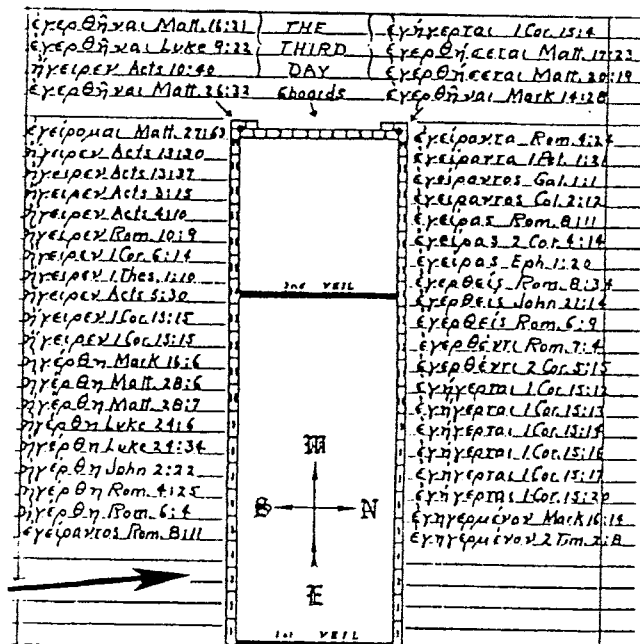 ἐγερθῆναι Matt. 16:21 THE ἐγήγερται 1 Cor. 15:4
ἐγερθῆναι Luke 9:22 THIRD ἐγερθήσεται Matt. 17:23
ἤγειρεν Acts 10:40 DAY ἐγερθήσεται Matt. 20:19
ἐγερθῆναι Matt. 26:32 6 boards ἐγερθῆναι Mark 14:28
ἐγείρομαι Matt. 27:63
ἤγειρεν Acts 13:30
ἤγειρεν Acts 13:37
ἤγειρεν Acts 3:15
ἤγειρεν Acts 4:10
ἤγειρεν Rom. 10:9
ἤγειρεν 1 Cor. 6:14
ἤγειρεν 1 Thes. 1:10
ἤγειρεν Acts 5:30
ἤγειρεν 1 Cor. 15:15
ἤγειρεν 1 Cor. 15:15
ἠγέρθη Mark 16:6
ἠγέρθη Matt. 28:6
ἠγέρθη Matt. 28:7
ἠγέρθη Luke 24:6
ἠγέρθη Luke 24:34
ἠγέρθη John 2:22
ἠγέρθη Rom. 4:25
ἠγέρθη Rom. 6:4
ἐγείραντος Rom. 8:11
2nd VEIL
W
S N
E
1st VEIL
ἐγείραντα Rom. 4:24
ἐγείραντα 1 Pet. 1:21
ἐγείραντος Gal. 1:1
ἐγείραντος Col. 2:12
ἐγείρας Rom. 8:11
ἐγείρας 2 Cor. 4:14
ἐγείρας Eph. 1:20
ἐγερθείς Rom. 8:34
ἐγερθεις John 21:14
ἐγερθείς Rom. 6:9
ἐγερθέντι Rom. 7:4
ἐγερθέντι 2 Cor. 5:15
ἐγήγερται 1 Cor. 15:12
ἐγήγερται 1 Cor. 15:13
ἐγήγερται 1 Cor. 15:14
ἐγήγερται 1 Cor. 15:16
ἐγήγερται 1 Cor. 15:17
ἐγήγερται 1 Cor. 15:20
ἐγηγερμένον Mark 16:14
ἐγηγερμένον 2 Tim. 2:8